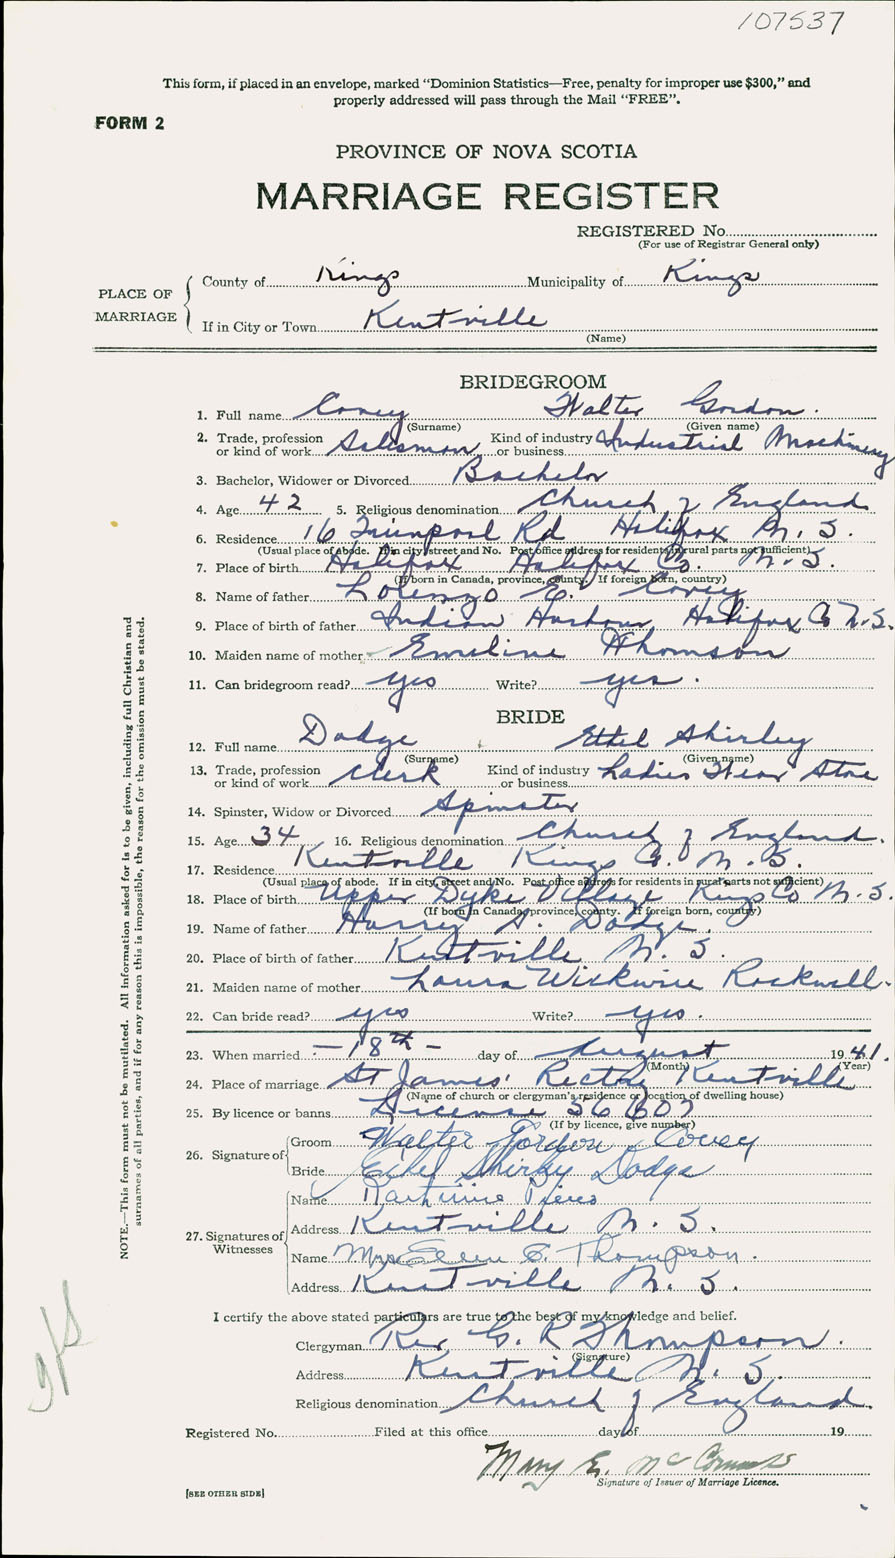 107537
This form, if placed in an envelope, marked “Dominion Statistics—Free, penalty for improper use $300,” and
properly addressed will pass through the Mail “FREE”.
FORM 2
PROVINCE OF NOVA SCOTIA
MARRIAGE REGISTER
REGISTERED No.
(For use of Registrar General only)
PLACE OF MARRIAGE
County of Kings Municipality of Kings
If in City or Town Kentville
(Name)
BRIDEGROOM
1. Full name Covey Walter Gordon.
(Surname) (Given name)
2. Trade, profession or kind of work Salesman Kind of industry or business Industrial Machinery
3. Bachelor, Widower or Divorced Bachelor
4. Age 42 5. Religious denomination Church of England
6. Residence 16 Rd Halifax N. S.
(Usual place of abode. If in city street and No. Post office address for residents in rural parts not sufficient)
7. Place of birth Halifax Halifax Co. N. S.
(If born in Canada, province, county. If foreign born, country)
8. Name of father Lorenzo E. Covey
9. Place of birth of father Indian Harbour Halifax Co N.S.
10. Maiden name of mother Emeline Thomson
11. Can bridegroom read? yes Write? yes.
BRIDE
12. Full name Dodge Ethel Shirley
(Surname) (Given name)
13. Trade, profession or kind of work Clerk Kind of industry or business Ladies Wear Store
14. Spinster, Widow or Divorced Spinster
15. Age 34 16. Religious denomination Church of England.
17. Residence Kentville Kings Co. N. S.
(Usual place of abode. If in city, street and No. Post office address for residents in rural parts not sufficient)
18. Place of birth Upper Dyke Village Kings Co N. S.
(If born in Canada, province, county. If foreign born, country)
19. Name of father Harry A. Dodge.
20. Place of birth of father Kentville N. S.
21. Maiden name of mother Laura Wickwire Rockwell.
22. Can bride read? yes Write? yes.
23. When married - 18th - day of August 1941.
(Month) (Year)
24. Place of marriage St James' Rectory Kentville
(Name of church or clergyman's residence or location of dwelling house)
25. By licence or banns License 56607
(If by licence, give number)
26. Signature of Groom Walter Gordon Covey
Bride Ethel Shirley Dodge
27. Signatures of Witnesses
Name
Address Kentville N. S.
Name Mrs Ellen C. Thompson.
Address Kentville N. S.
I certify the above stated particulars are true to the best of my knowledge and belief.
Clergyman Rev. C. R Thompson.
(Signature)
Address Kentville N. S.
Religious denomination Church of England.
Registered No. Filed at this office day of 19
Mary E.
Signature of Issuer of Marriage Licence.
[SEE OTHER SIDE]
NOTE.—This form must not be mutilated. All information asked for is to be given, including full Christian and
surnames of all parties, and if for any reason this is impossible, the reason for the omission must be stated.